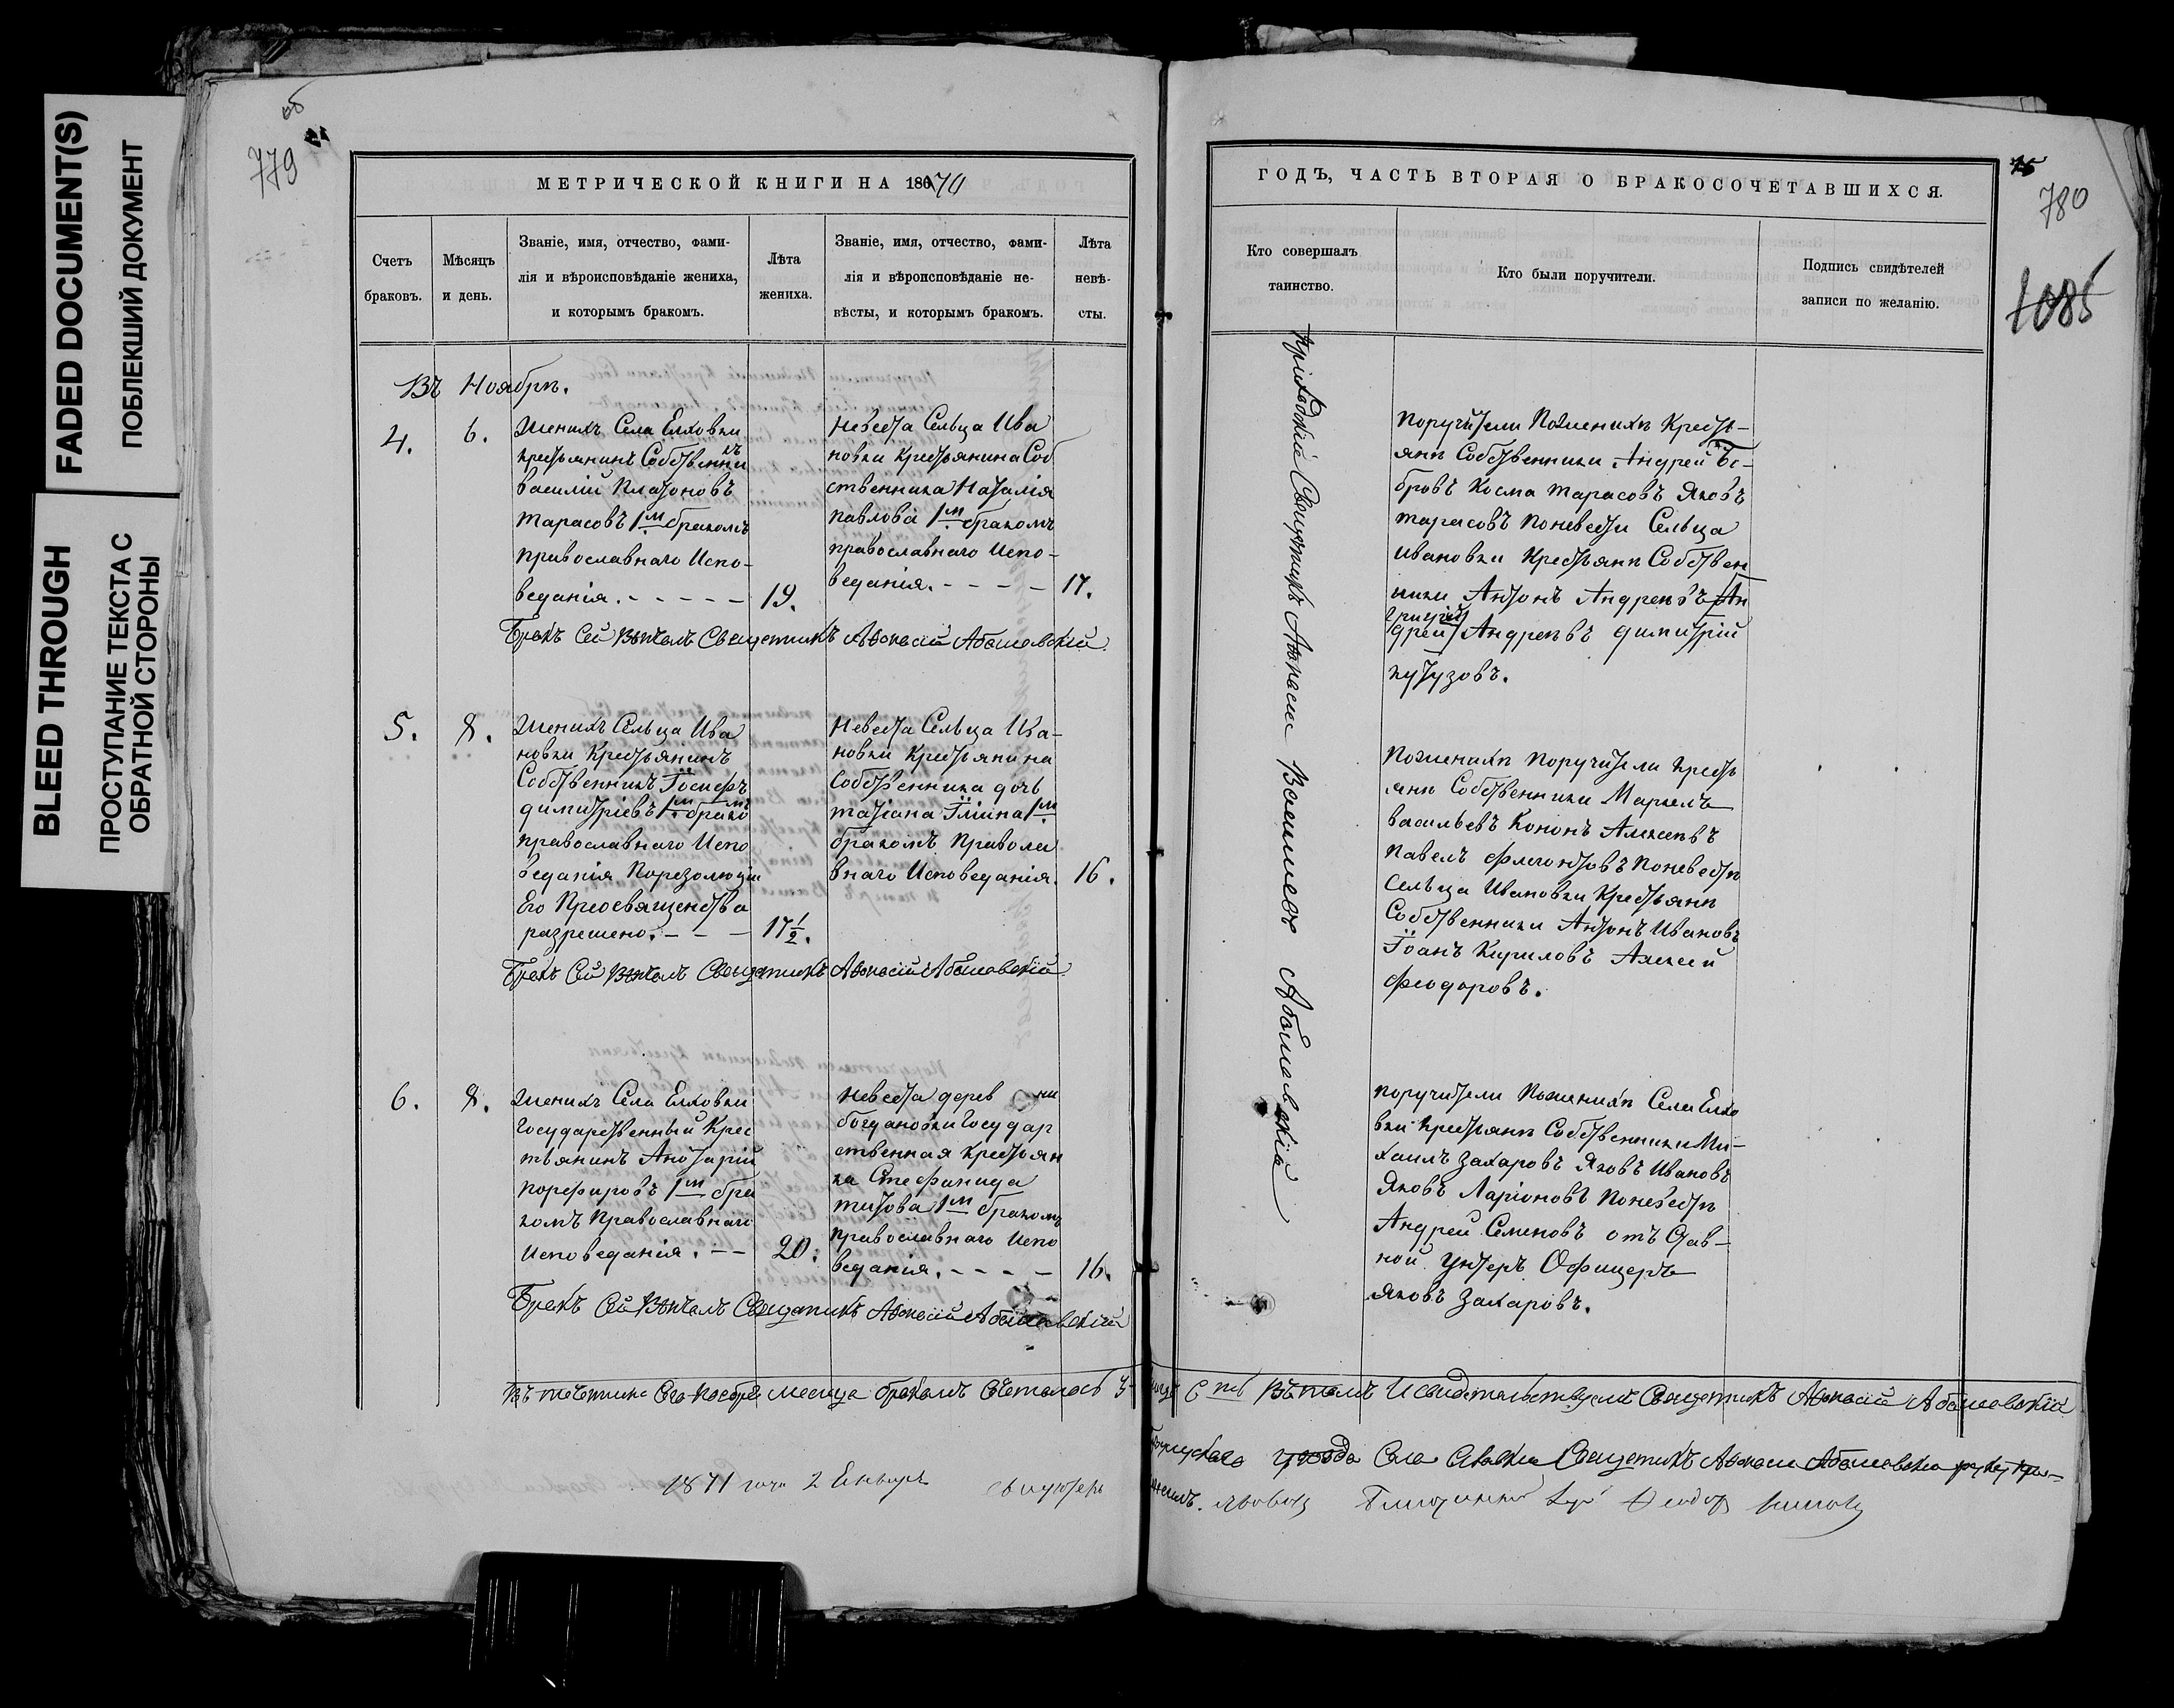 FADED DOCUMENT(S)
ПОБЛЕКШИЙ ДОКУМЕНТ
BLEED THROUGH
ПРОСТУПАНИЕ ТЕКСТА С
ОБРАТНОЙ СТОРОНЫ
об
779
МЕТРИЧЕСКОЙ КНИГИ НА 1870
Счетъ
браковъ.
Мѣсяцъ
и день.
Званіе, имя, отчество, фами-
лія и вѣроисповѣданіе жениха,
и которымъ бракомъ.
Лѣта
жениха.
Званіе, имя, отчество, фами-
лія и вѣроисповѣданіе не-
вѣсты, и которымъ бракомъ.
Лѣта
невѣ-
сты.
Въ Ноябрѣ.
4.
6.
Женихъ Села Елховки
крестьянинъ Собственникъ
василій Платоновъ
Тарасовъ 1м бракомъ
православнаго Испо-
веданія. - - - - -
19.
Невеста Сельца Ива
новки Крестьянина Соб
ственника Наталія
павлова 1м бракомъ
православнаго Испо-
веданія. - - - -
17.
Бракъ Сей Венчалъ Священникъ Афонасій Абашевскій.
5.
8.
Женихъ Сельца Ива
новки Крестьянинъ
Собственникъ Іосифъ
димитріевъ 1м бракомъ
православнаго Испо
веданія Порезолюціи
Его Преосвященства
разрешено. - - -
17 1/2.
Невеста Сельца Ива-
новки Крестьянина
Собственника дочь
татіана Іліина 1м
бракомъ Правосла
внаго Исповеданія.
16.
Бракъ Сей Венчалъ Священникъ Афонасій Абашевскій.
6.
8.
Женихъ Села Елховки
Государственный Крес
тьянинъ
Порфировъ 1м бра
комъ Православнаго
Исповеданія. - -
20.
Невеста деревни
богдановки Государ
ственная Крестьян
ка Стефанида
титова 1м бракомъ
православнаго Испо
веданія. - - - -
16.
Бракъ Сей Венчалъ Священникъ Афонасій Абашевскій
Въ течении Сего Ноебря месица бракомъ Сочеталось 3
1871 года 2 Енваря
ГОДЪ, ЧАСТЬ ВТОРАЯ О БРАКОСОЧЕТАВШИХСЯ.
780
1085
Кто совершалъ
таинство.
Кто были поручители.
Подпись свидѣтелей
записи по желанію.
Приходскій Священникъ Афанасій Васильевъ Абашевскій
Поручители Поженихѣ Кресть-
янѣ Собственники Андрей Бо-
бровъ Косма Тарасовъ Яковъ
тарасовъ Поневести Сельца
Ивановки Крестьянѣ Собствен
ники Антонъ Андреевъ Ан
Григрій
дрей Андреевъ димитрій
кутузовъ.
Поженихѣ Поручители Кресть
янѣ Собственники Маркелъ
васильевъ Кононъ Алексеевъ
Павелъ Флегонтовъ Поневестѣ
Сельца Ивановки Крестьянѣ
Собственники Антонъ Ивановъ
Іоанъ Кириловъ Алексей
Феодоровъ.
Поручители Поженихѣ Села Елхо
вки Крестьянѣ Собственники Ми-
хаилъ Захаровъ Яковъ Ивановъ
Яковъ Ларіоновъ Поневестѣ
Андрей Семеновъ отъ Став-
ной Унтеръ Офицеръ
Яковъ Захаровъ.
Венчалъ И свидетельствовалъ Священникъ Афонасій Абашевскій
уезда Села Елховки Священникъ Афонасій Абашевскій руку при-